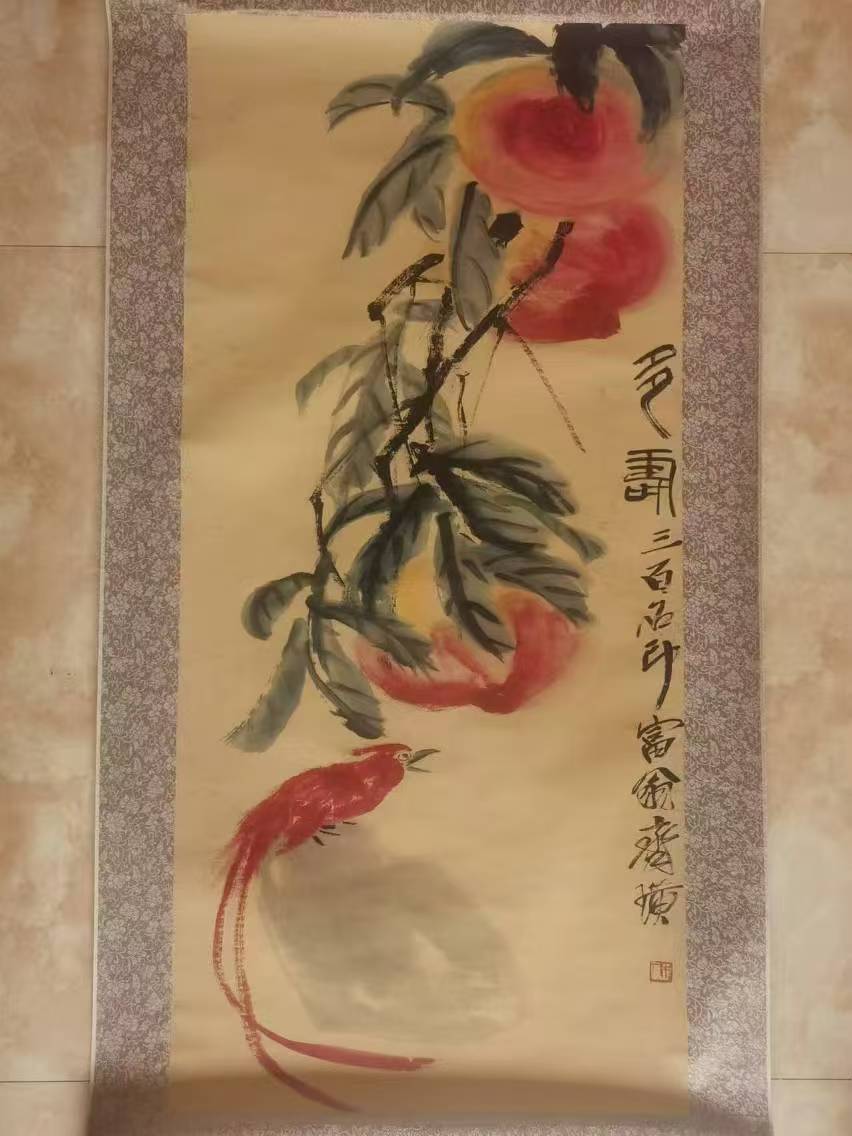 多壽三百石印富翁齊璜